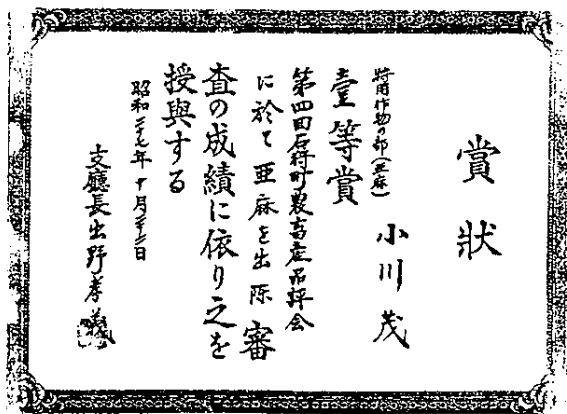 賞狀
小川茂
特用作物の部(亜麻)
壹等賞
第四回石狩町農畜産品評会
に於て亜麻を出陳審
査の成績に依り之を
授與する
昭和二十七年十月二十二日
支廳長出野孝義